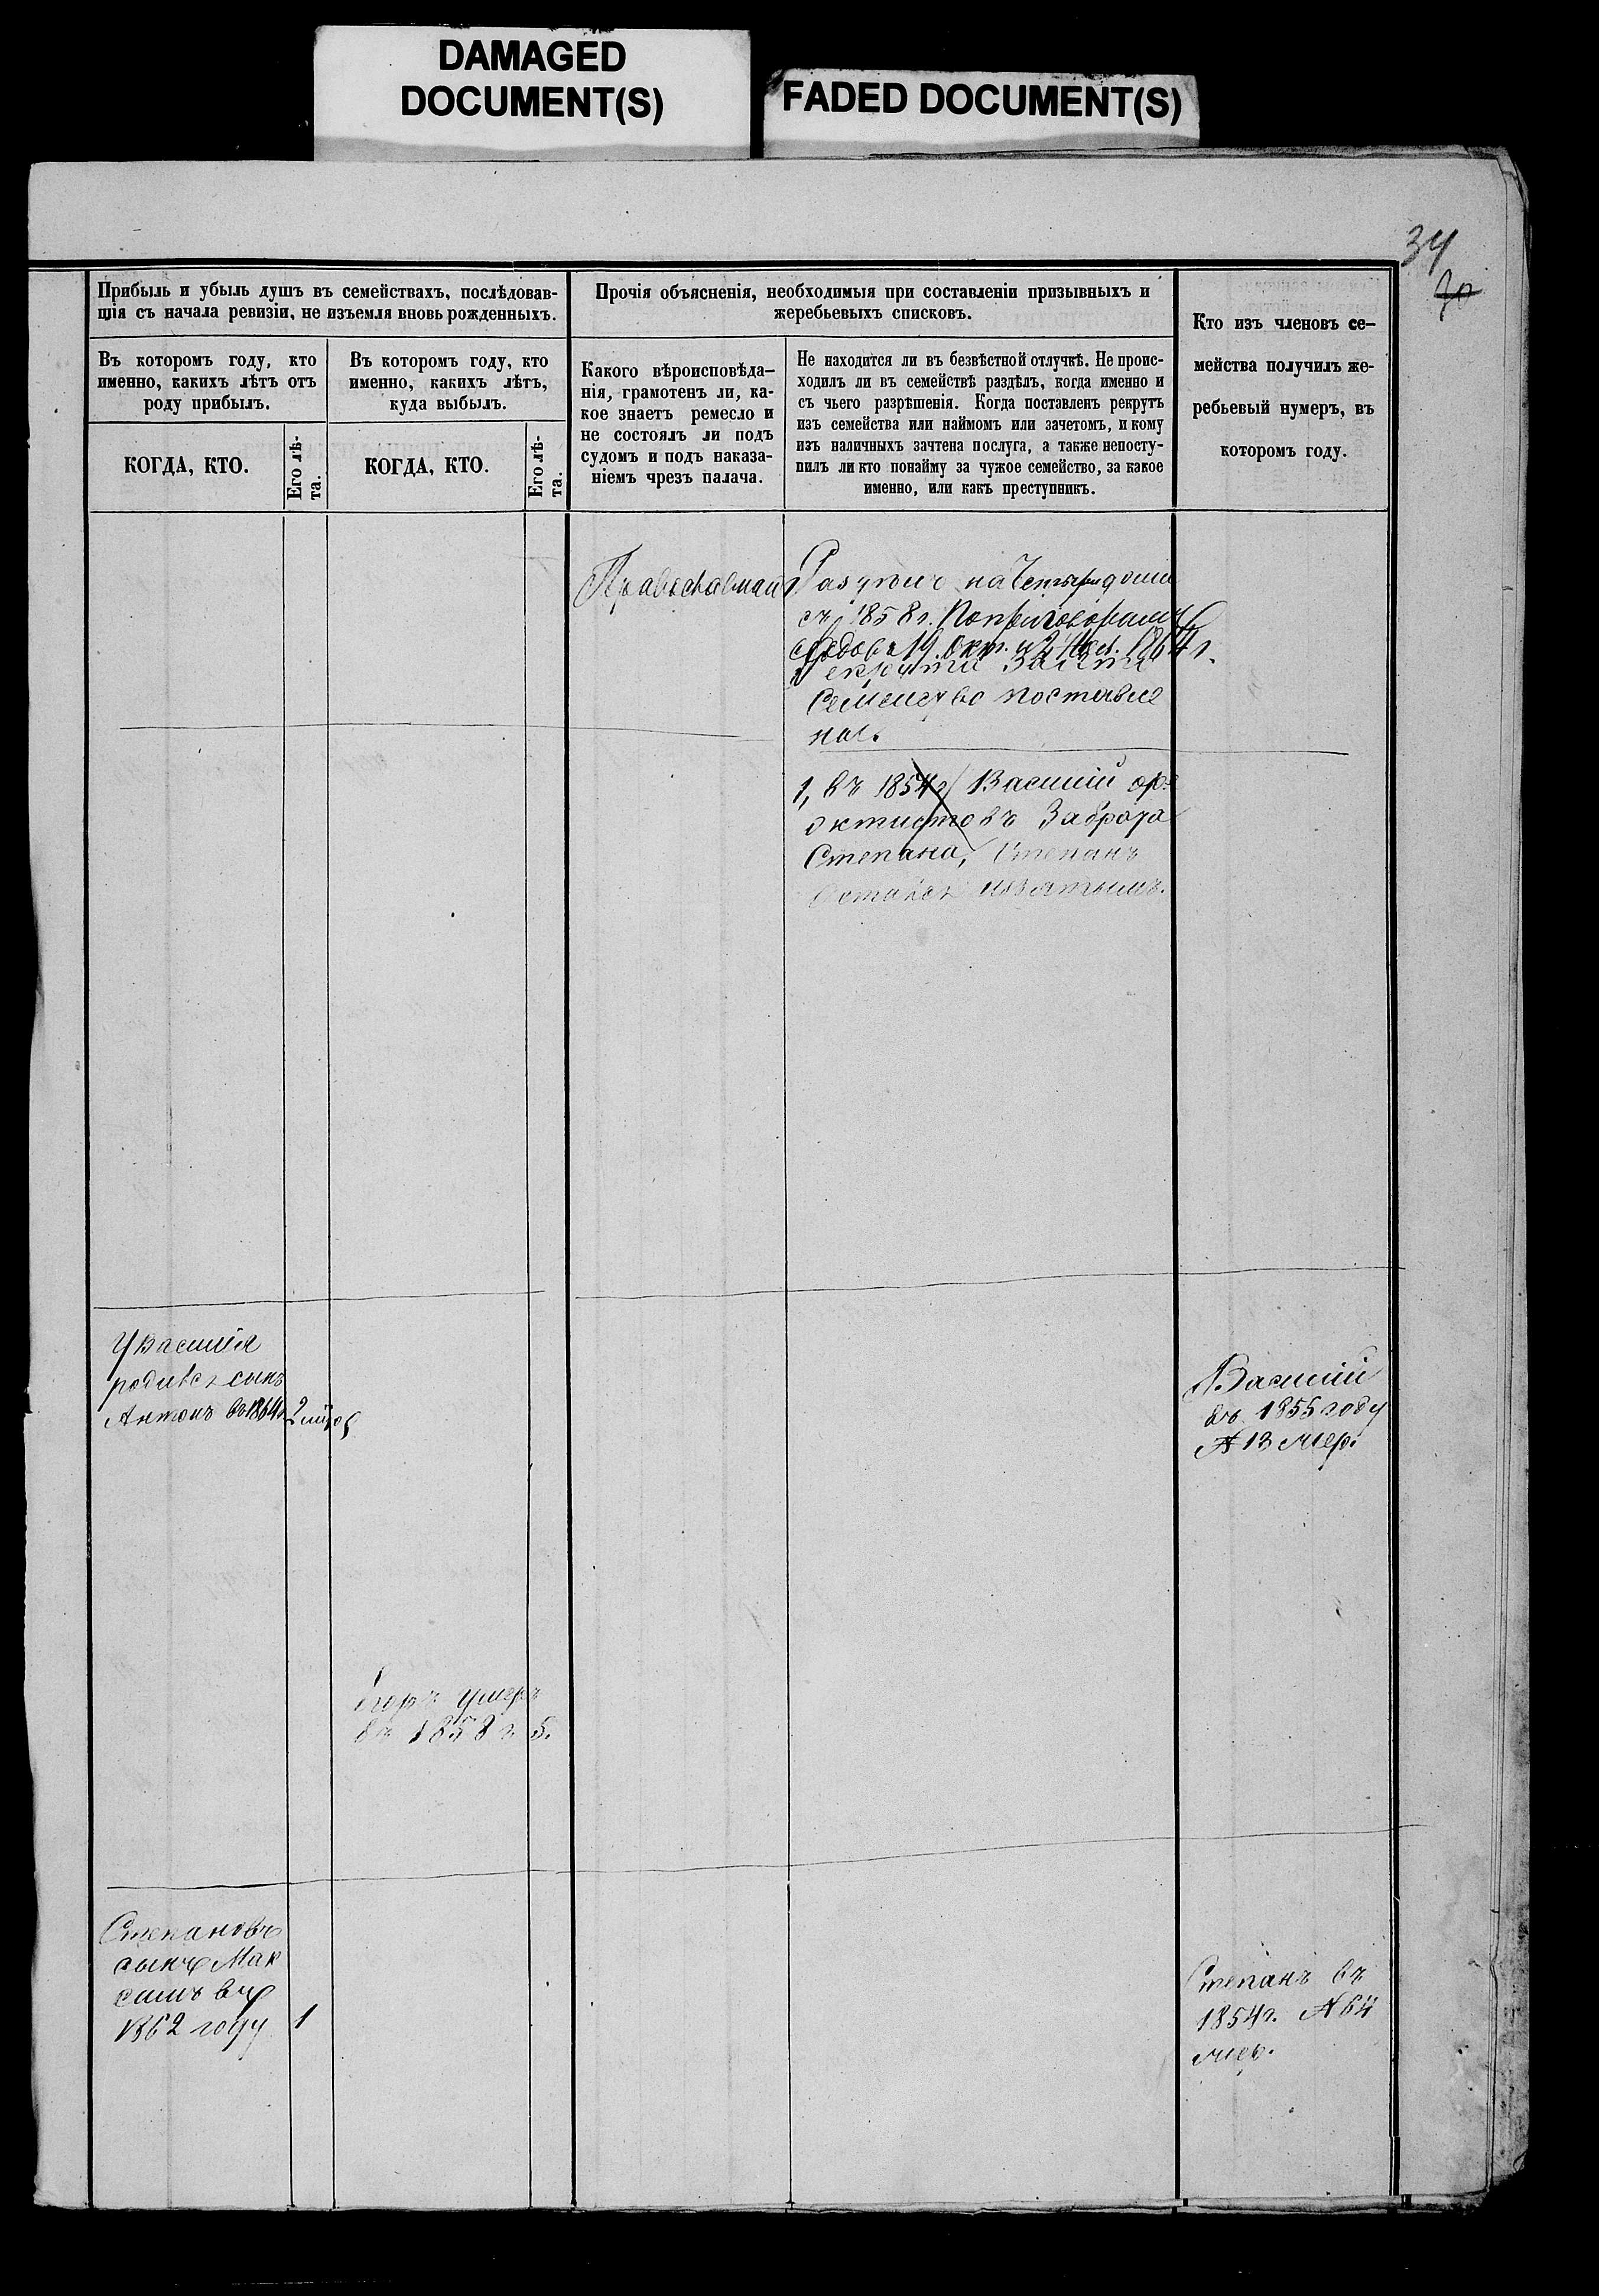 DAMAGED
DOCUMENT(S)
FADED DOCUMENT(S)
34
Прибыль и убыль душъ въ семействахъ, послѣдовав-
шія съ начала ревизіи, не изъемля вновь рожденныхъ.
Въ которомъ году, кто
именно, какихъ лѣтъ отъ
роду прибылъ.
КОГДА, КТО.
Его лѣ-
та.
Въ которомъ году, кто
именно, какихъ лѣтъ,
куда выбылъ.
КОГДА, КТО.
Его лѣ-
та.
Прочія объясненія, необходимыя при составленіи призывныхъ и
жеребьевыхъ списковъ.
Какого вѣроисповѣда-
нія, грамотенъ ли, ка-
кое знаетъ ремесло и
не состоялъ ли подъ
судомъ и подъ наказа-
ніемъ чрезъ палача.
Не находится ли въ безвѣстной отлучкѣ. Не проис-
ходилъ ли въ семействѣ раздѣлъ, когда именно и
съ чьего разрѣшенія. Когда поставленъ рекрутъ
изъ семейства или наймомъ или зачетомъ, и кому
изъ наличныхъ зачтена послуга, а также непосту-
пилъ ли кто понайму за чужое семейство, за какое
именно, или какъ преступникъ.
Кто изъ членовъ се-
мейства получилъ же-
ребьевый нумеръ, въ
которомъ году.
Православнаго
на Четыре
съ 1858 г. По приговорамъ
19. Окт. и 2 1864 г.
Рекрута За
Семейство поставле
но.
1, въ 1854 г Василій
октистовъ За брата
Степана, Степанъ
Остался
У Василія
родился сынъ
Антонъ въ 1864 г
Василій
въ 1855 году
№ 13 мер.
Егоръ умеръ
въ 1858 г 5.
Степановъ
сынъ Мак
симъ въ
1862 году 1
Степанъ въ
1854 г. № 64